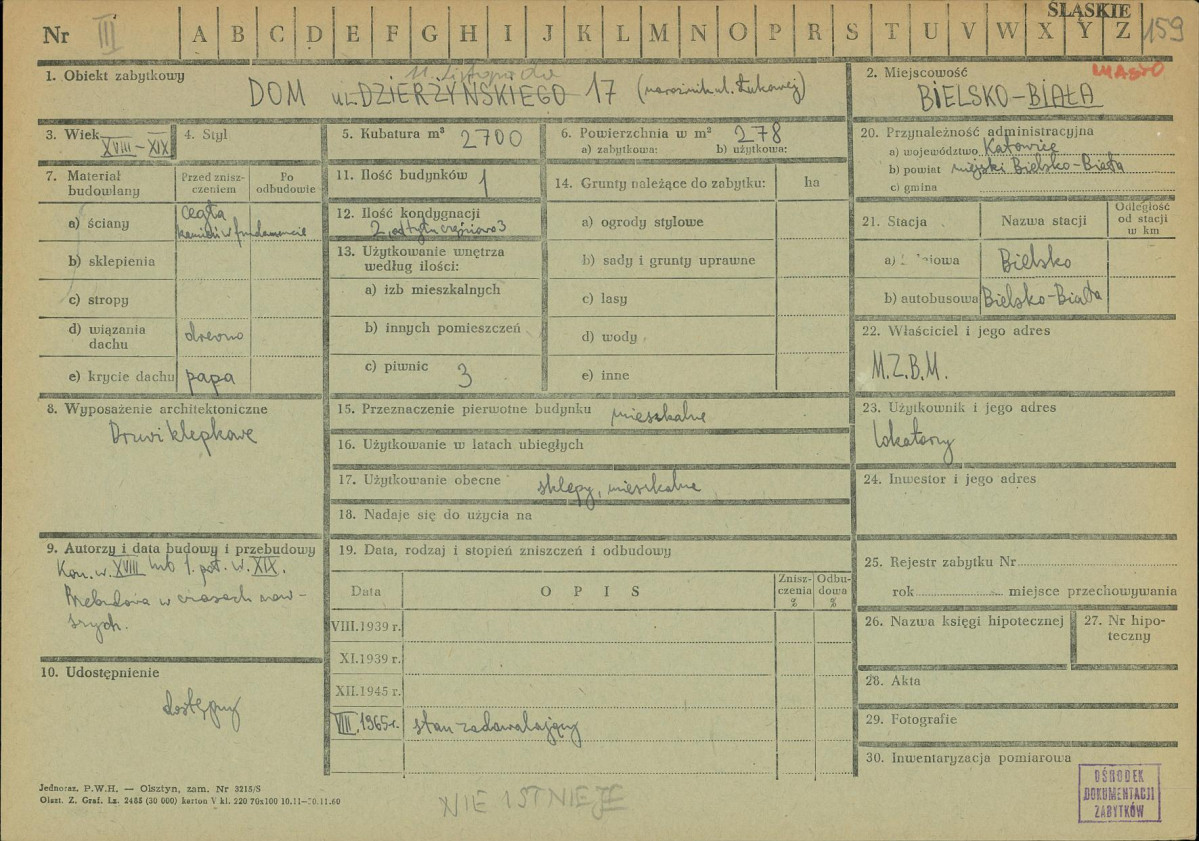 ŚLĄSKIE
Nr III A B C D E F G H I J K L M N O P R S T U V W X Y Z 159
1. Obiekt zabytkowy
11 Listopada
DOM ul. DZIERŻYŃSKIEGO 17 (narożnik ul. Łukowej)
2. Miejscowość
MIASTO
BIELSKO-BIAŁA
3. Wiek
XVIII-XIX
4. Styl
5. Kubatura m³ 2700
6. Powierzchnia w m² 278
a) zabytkowa: b) użytkowa:
20. Przynależność administracyjna
a) województwo Katowice
b) powiat miejski Bielsko-Biała
c) gmina
7. Materiał budowlany
Przed znisz-
czeniem
Po
odbudowie
a) ściany cegła
kamień w fundamencie
b) sklepienia
c) stropy
d) wiązania
dachu drewno
e) krycie dachu papa
11. Ilość budynków 1
12. Ilość kondygnacji
2, od tyłu częściowo 3
13. Użytkowanie wnętrza
według ilości:
a) izb mieszkalnych
b) innych pomieszczeń
c) piwnic 3
14. Grunty należące do zabytku: ha
a) ogrody stylowe
b) sady i grunty uprawne
c) lasy
d) wody
e) inne
21. Stacja Nazwa stacji
Odległość
od stacji
w km
a) Bielsko
b) autobusowa Bielsko-Biała
22. Właściciel i jego adres
M.Z.B.M.
8. Wyposażenie architektoniczne
Drzwi klepkowe
15. Przeznaczenie pierwotne budynku mieszkalne
16. Użytkowanie w latach ubiegłych
17. Użytkowanie obecne sklepy, mieszkalne
18. Nadaje się do użycia na
23. Użytkownik i jego adres
lokatorzy
24. Inwestor i jego adres
9. Autorzy i data budowy i przebudowy
Kon. w. XVIII lub 1. poł. w. XIX.
Przebudowa w czasach now-
szych.
19. Data, rodzaj i stopień zniszczeń i odbudowy
Data OPIS
Znisz-
czenia
%
Odbu-
dowa
%
VIII.1939 r.
XI.1939 r.
XII.1945 r.
VIII.1965 r. stan zadowalający
25. Rejestr zabytku Nr
rok miejsce przechowywania
26. Nazwa księgi hipotecznej
27. Nr hipo-
teczny
10. Udostępnienie
dostępny
28. Akta
29. Fotografie
30. Inwentaryzacja pomiarowa
OŚRODEK
DOKUMENTACJI
ZABYTKÓW
Jednoraz. P.W.H. — Olsztyn, zam. Nr 3215/S
Olszt. Z. Graf. Lz. 2485 (30 000) karton V kl. 220 70x100 10.11—30.11.60
NIE ISTNIEJE